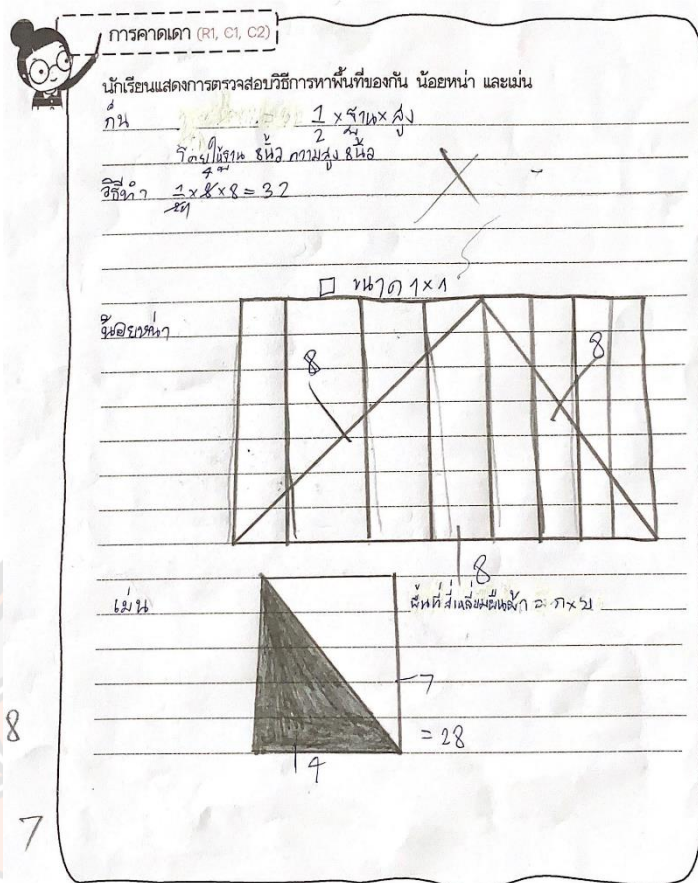 การคาดเดา (R1, C1, C2)
นักเรียนแสดงการตรวจสอบวิธีการหาพื้นที่ของกัน น้อยหน่า และเม่น
กัน 1/2 × ฐาน × สูง
โดยใช้ฐาน 8นิ้ว ความสูง 8นิ้ว
4
วิธีทำ 1/2 × 8 × 8 = 32
□ ขนาด 1×1
น้อยหน่า
8
8
8
เม่น
พื้นที่สี่เหลี่ยมผืนผ้า = ก×ย
7
= 28
4
8
7